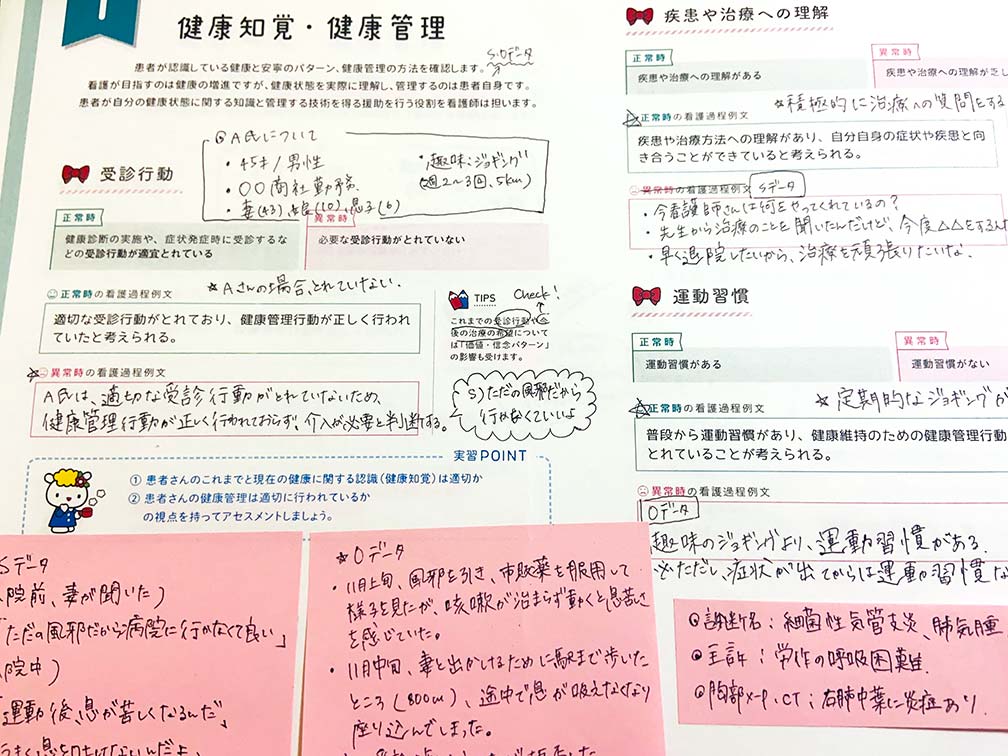 1
健康知覚・健康管理
患者が認識している健康と安寧のパターン、健康管理の方法を確認します。
S・Oデータ
看護が目指すのは健康の増進ですが、健康状態を実際に理解し、管理するのは患者自身です。
患者が自分の健康状態に関する知識と管理する技術を得る援助を行う役割を看護師は担います。
A氏について
・45才/男性
・〇〇商社勤務
・妻(43)、娘(10)、息子(6)
・趣味:ジョギング
(週2〜3回、5km)
受診行動
正常時
健康診断の実施や、症状発症時に受診するな
どの受診行動が適宜とれている
異常時
必要な受診行動がとれていない
☆Aさんの場合、とれていない。
正常時の看護過程例文
適切な受診行動がとれており、健康管理行動が正しく行われ
ていたと考えられる。
☆異常時の看護過程例文
A氏は、適切な受診行動がとれていないため、
健康管理行動が正しく行われておらず、介入が必要と判断する。
TIPS
Check!
これまでの受診行動や今
後の治療の希望について
は「価値・信念パターン」
の影響も受けます。
S)ただの風邪だから
行かなくていいよ
実習POINT
① 患者さんのこれまでと現在の健康に関する認識(健康知覚)は適切か
② 患者さんの健康管理は適切に行われているか
の視点を持ってアセスメントしましょう。
Sデータ
院前、妻が聞いた)
「ただの風邪だから病院に行かなくて良い」
院中)
運動後、息が苦しくなるんだ」
☆Oデータ
・11月上旬、風邪を引き、市販薬を服用して
様子を見たが、咳嗽が治まらず動くと息苦しさ
を感じていた。
・11月中旬、妻と出かけるために駅まで歩いた
ところ(800m)、途中で息が吸えなくなり
座り込んでしまった。
疾患や治療への理解
正常時
疾患や治療への理解がある
異常時
疾患や治療への理解が乏し
☆積極的に治療への質問をする
☆正常時の看護過程例文
疾患や治療方法への理解があり、自分自身の症状や疾患と向
き合うことができていると考えられる。
異常時の看護過程例文
Sデータ
・今看護師さんは何をやってくれているの?
・先生から治療のことを聞いたんだけど、今度△△をするんだ
・早く退院したいから、治療を頑張りたいな。
運動習慣
正常時
運動習慣がある
異常時
運動習慣がない
☆定期的なジョギングが
☆正常時の看護過程例文
普段から運動習慣があり、健康維持のための健康管理行動
とれていることが考えられる。
異常時の看護過程例文
Oデータ
趣味のジョギングより、運動習慣がある。
※ただし、症状が出てからは運動習慣な
◎診断名:細菌性気管支炎、肺気腫
◎主訴:労作の呼吸困難
◎胸部X-P、CT:右肺中葉に炎症あり。